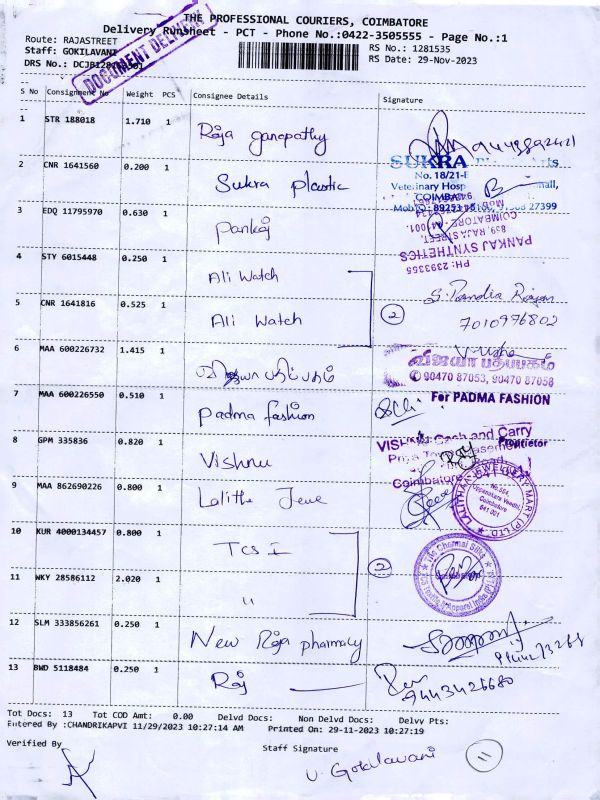 THE PROFESSIONAL COURIERS, COIMBATORE
Delivery Runsheet - PCT - Phone No.:0422-3505555 - Page No.:1
Route: RAJASTREET
Staff: GOKILAVANI
RS No.: 1281535
DRS No.:
RS Date: 29-Nov-2023
DOCUMENT DELIVERY
S No Consignment No Weight PCS Consignee Details Signature
1 STR 188018 1.710 1 Raja ganapathy
2 CNR 1641560 0.200 1 Sukra plastic
SUKRA
No. 18/21-E
Veterinary Hosp
COIMBAT
3 EDQ 11795970 0.630 1 Pankaj
PANKAJ SYNTHETICS
859, RAJA STREET,
COIMBATORE - 641001.
PH: 2393355
4 STY 6015448 0.250 1 Ali Watch
5 CNR 1641816 0.525 1 Ali Watch
2 S. Pandia Rajan
7010976802
6 MAA 600226732 1.415 1 விஜயா பதிப்பகம்
Usha
விஜயா பதிப்பகம்
90470 87053, 90470 87058
7 MAA 600226550 0.510 1 Padma fashion
For PADMA FASHION
Proprietor
8 GPM 335836 0.820 1 Vishnu
Cash and Carry
Coimbatore
9 MAA 862690226 0.800 1 Lalitha Jewe
LALITHAA JEWELLERY MART (P) LTD
Coimbatore
641 001
10 KUR 4000134457 0.800 1 TCS I
11 WKY 28586112 2.020 1 "
2
The Chennai Silks
12 SLM 333856261 0.250 1 New Raja pharmacy
13 BWD 5118484 0.250 1 Raj
9443426680
Tot Docs: 13 Tot COD Amt: 0.00 Delvd Docs: Non Delvd Docs: Delvy Pts:
Entered By :CHANDRIKAPVI 11/29/2023 10:27:14 AM Printed On: 29-11-2023 10:27:19
Verified By Staff Signature
V. Gokilavani
11